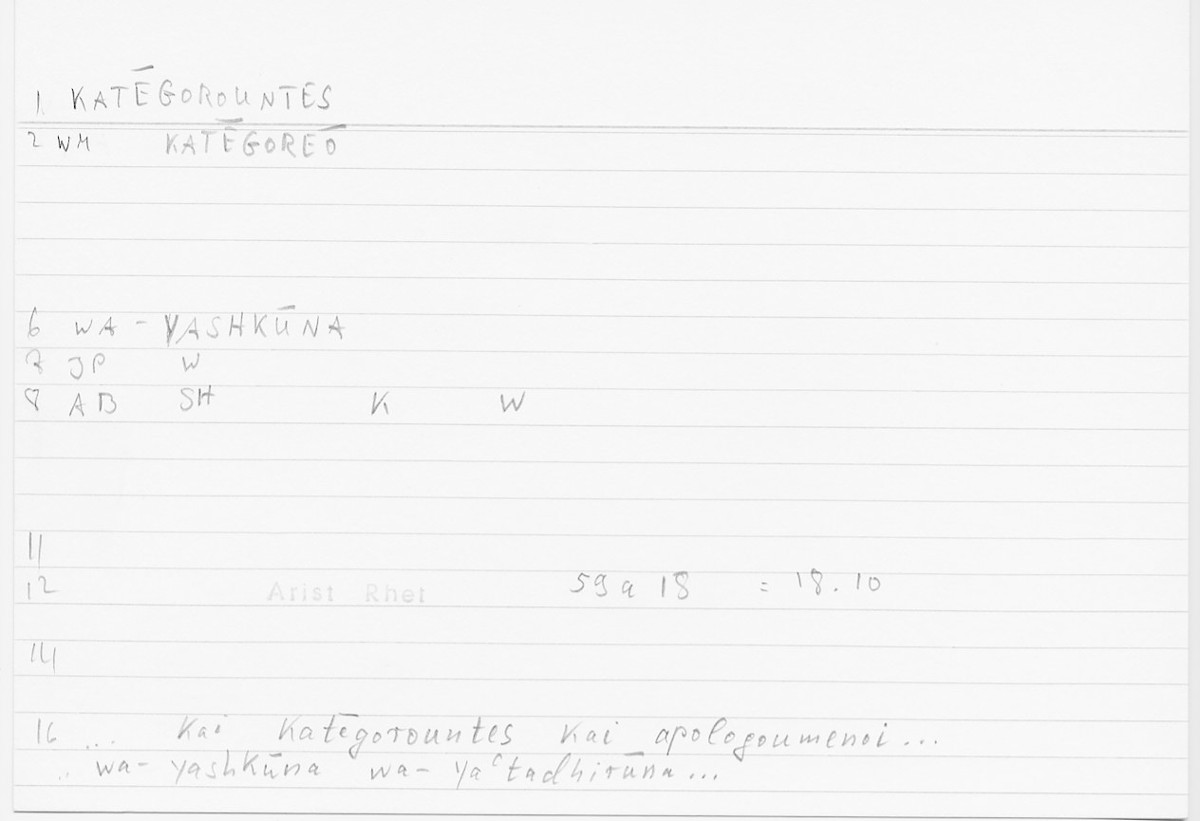 1. KATĒGOROUNTES
2 WM KATĒGOREŌ
6 WA - YASHKŪNA
7 JP W
8 AB SH K W
11
12 Arist Rhet 59 a 18 = 18.10
14
16 ... kai katēgorountes kai apologoumenoi ...
.. wa- yashkūna wa- yaʿtadhirūna ...